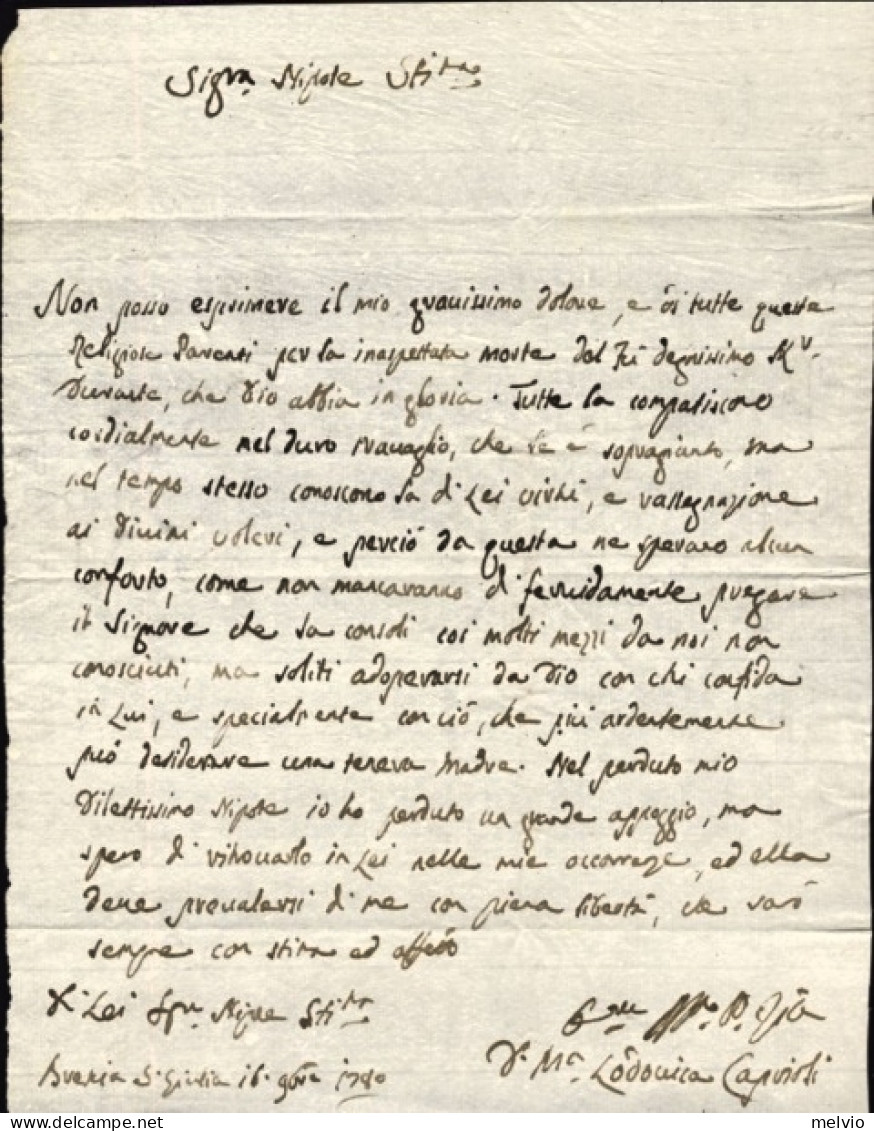 Sig.ra Nipote Stim.a
Non posso esprimere il mio grauissimo dolore, e di tutte queste
Religiose Parenti per la inaspettata morte del Fù degnissimo K.r
Durante, che Dio abbia in gloria. Tutte la compatiscono
cordialmente nel duro trauaglio, che le è sopragiunto, ma
nel tempo stesso conoscono la di Lei virtù, e rassegnazione
ai Diuini voleri, e perciò da questa ne sperano alcun
conforto, come non mancaranno di feruidamente pregare
il Signore che la consoli coi molti mezzi da noi non
conosciuti, ma soliti adoprarsi da Dio con chi confida
in Lui, e specialmente con ciò, che più ardentemente
può desiderare una tenera Madre. Nel perduto mio
Dilettissimo Nipote io ho perduto un grande appoggio, ma
spero di ritrouarlo in Lei nelle mie occorrenze, ed ella
deue preualersi di me con piena libertà, che sarò
sempre con stima ed affetto
Di Lei Sig.ra Nipote Stim.a
Zia
Brescia S. Giulia 16. 9bre 1780
D. M.a Lodouica Caprioli
melvio